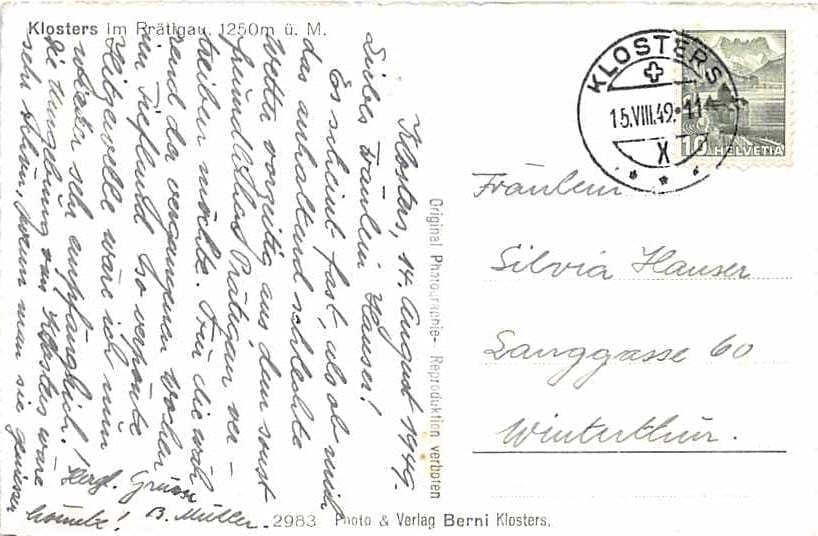 Klosters im Prätigau, 1250m ü. M.
Klosters, 14. August 1949.
Liebes Fräulein Hauser!
Es scheint fast, als ob mich
das anhaltend schlechte
Wetter vorzeitig aus dem sonst
freundlichen Prätigau ver-
treiben möchte. Für die wäh-
rend der vergangenen Wochen
im Tiefland so verhönte
Hitzewelle wäre ich nun
wieder sehr empfänglich!
die Umgebung von Klosters wäre
sehr schön, wenn man sie geniessen
könnte!
Herzl. Grüsse
B. Müller.
2983 Photo & Verlag Berni Klosters.
Original Photographie- Reproduktion verboten
KLOSTERS
15.VIII.49.-11
X
10 HELVETIA
Fräulein
Silvia Hauser
Langgasse 60
Winterthur.